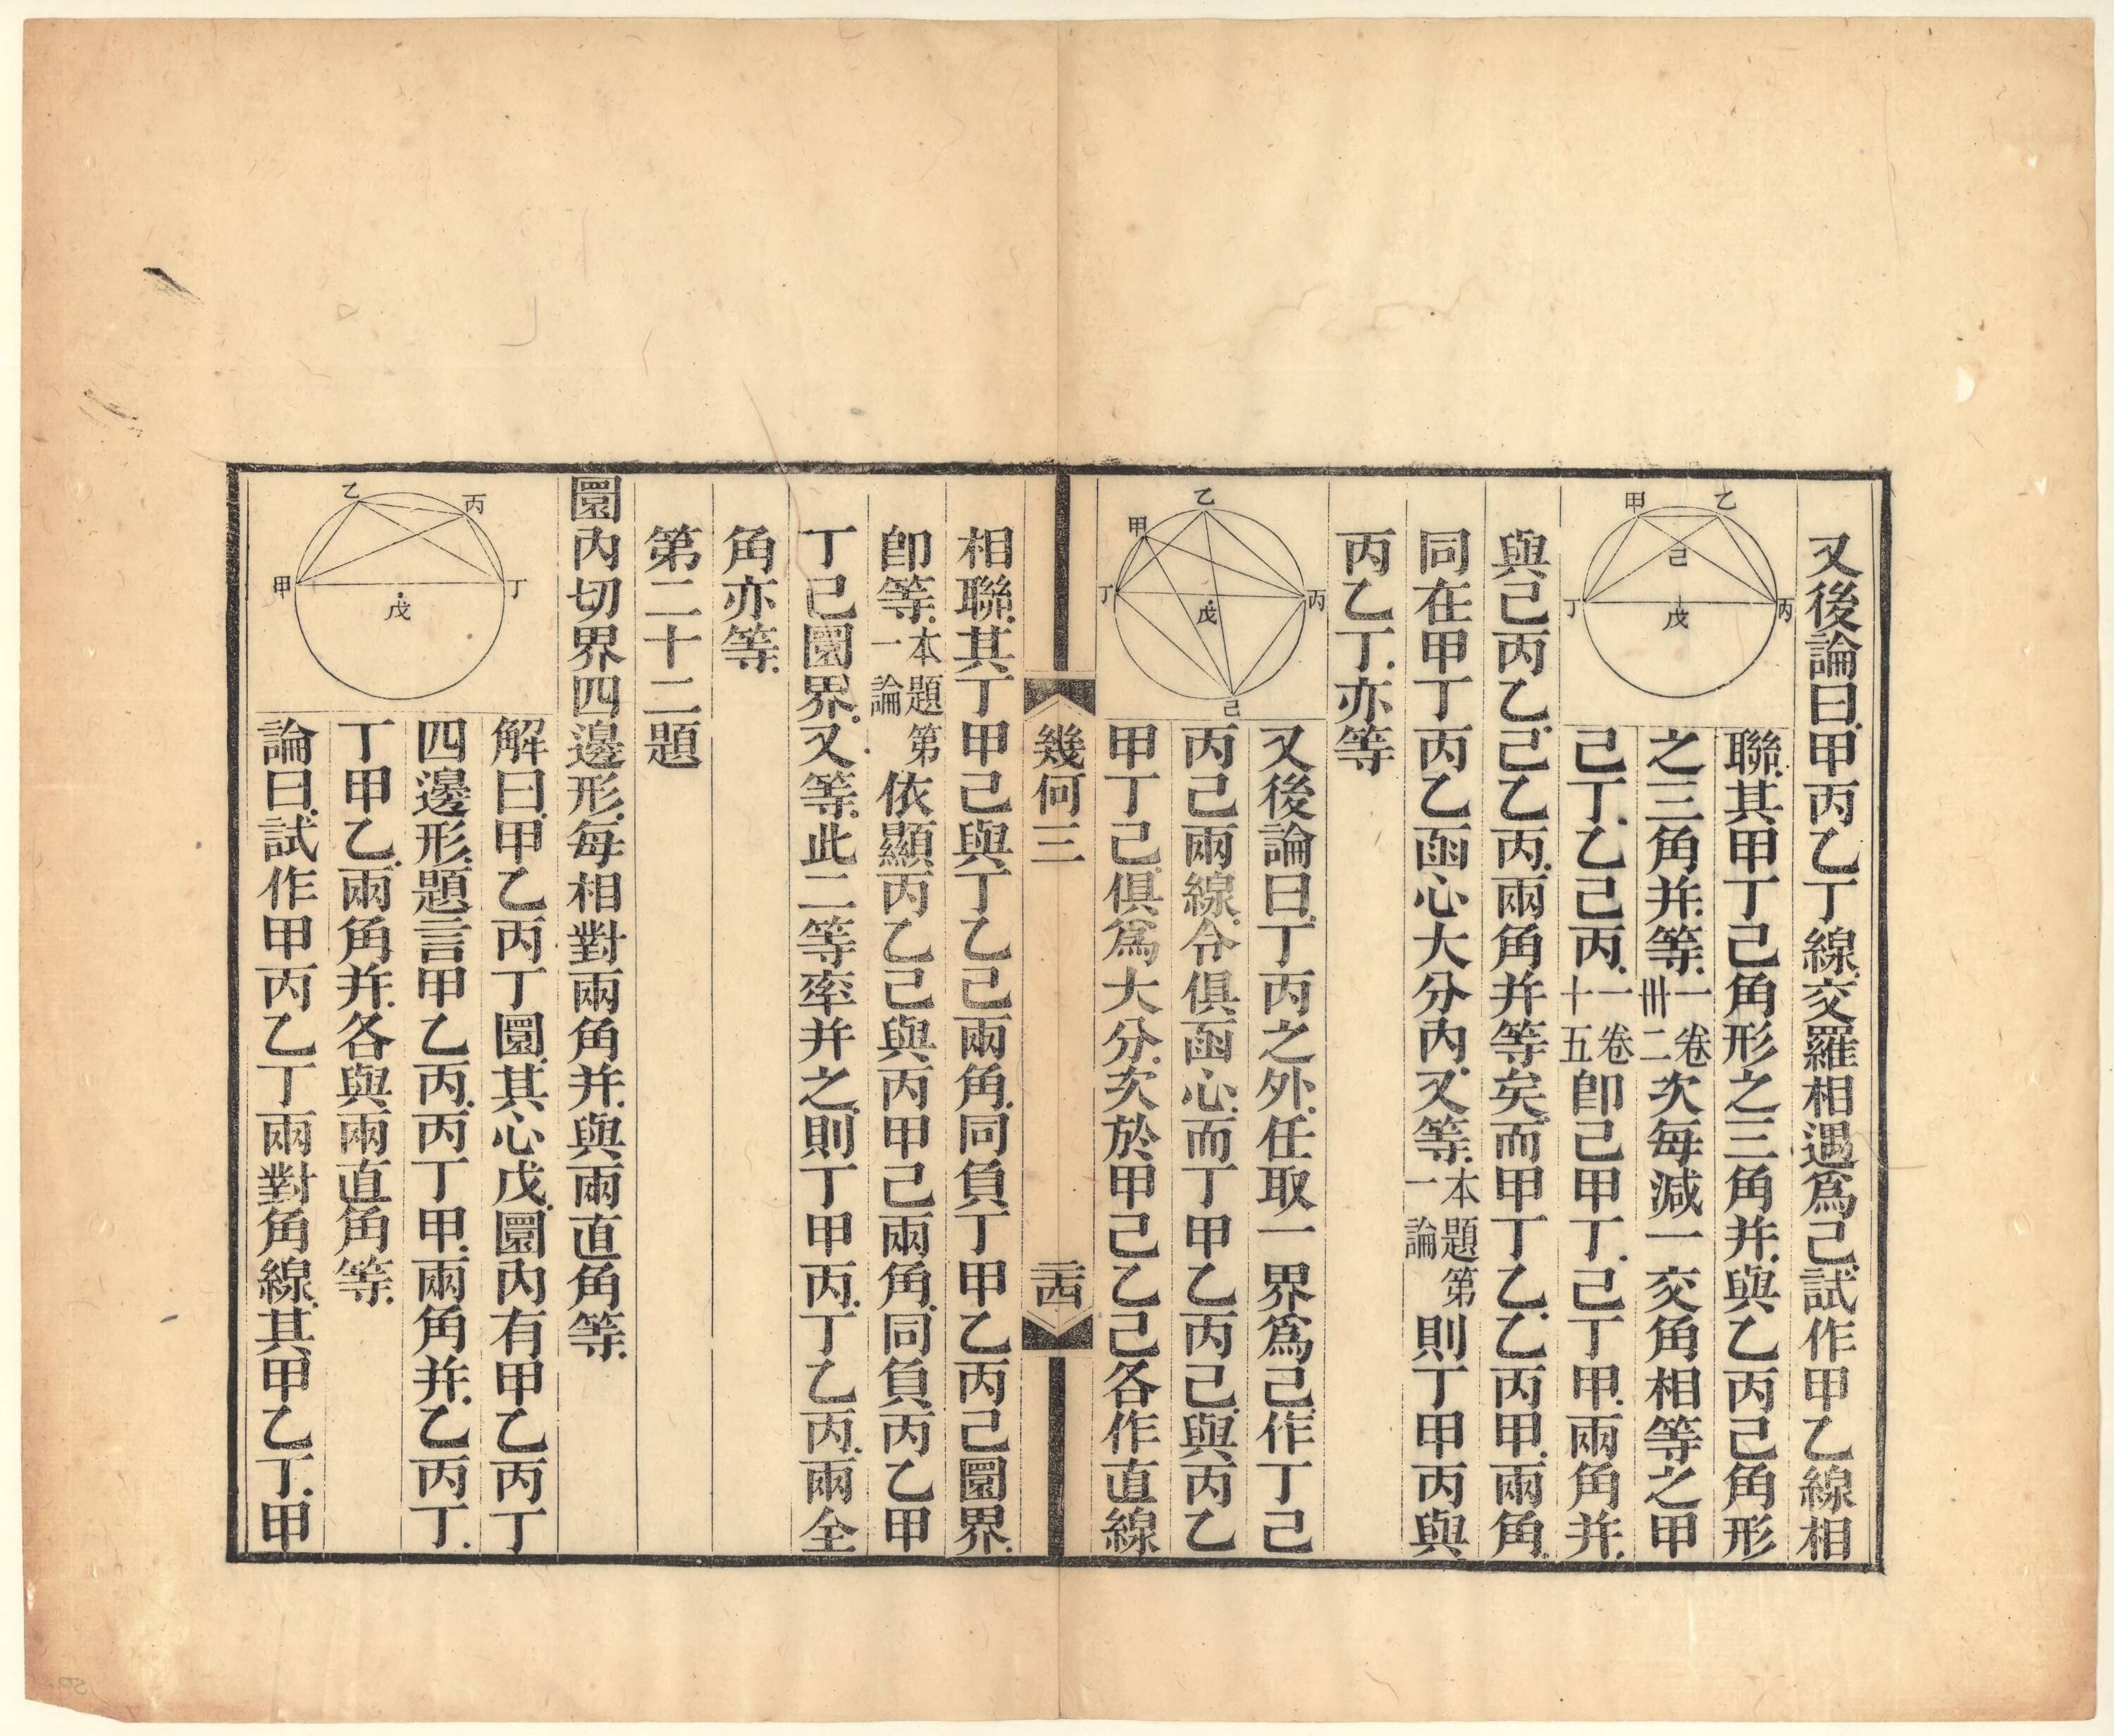 又後論曰.甲丙乙丁線.交羅相遇爲己.試作甲乙線相
甲 乙 己 丁 丙 戊
聯.其甲丁己角形之三角并.與乙丙己角形
之三角并.等.一卷卅二次每減一交角相等之甲
己丁.乙己丙.一卷十五卽己甲丁.己丁甲.兩角并.
與己丙乙.己乙丙.兩角并等矣.而甲丁乙.乙丙甲.兩角.
同在甲丁丙乙函心大分內.又等.本題第一論則丁甲丙與
丙乙丁.亦等
乙 甲 丁 丙 戊 己
又後論曰.丁丙之外.任取一界爲己.作丁己
丙己兩線.令俱函心.而丁甲乙丙己.與丙乙
甲丁己.俱爲大分.次於甲己乙己各作直線
幾何三 二十四
相聯.其丁甲己與丁乙己兩角.同負丁甲乙丙己圜界.
卽等.本題第一論依顯丙乙己與丙甲己兩角.同負丙乙甲
丁己圜界.又等.此二等率并之.則丁甲丙.丁乙丙.兩全
角亦等.
第二十二題
圜內切界四邊形.每相對兩角并.與兩直角等.
乙 丙 甲 丁 戊
解曰.甲乙丙丁圜.其心戊.圜內有甲乙丙丁
四邊形.題言甲乙丙.丙丁甲.兩角并.乙丙丁.
丁甲乙.兩角并.各與兩直角等.
論曰.試作甲丙乙丁兩對角線.其甲乙丁.甲